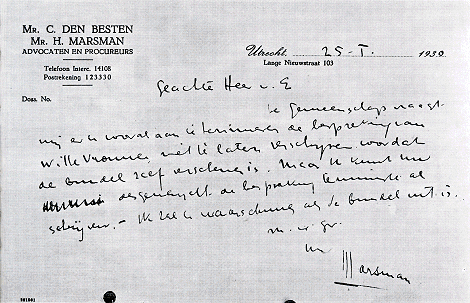 Mr. C. DEN BESTEN
Mr. H. MARSMAN
ADVOCATEN EN PROCUREURS
Telefoon Interc. 14108
Postrekening 123330
Doss. No.
Utrecht, 25-I. 1930
Lange Nieuwstraat 103
Geachte Heer v. E
De Gemeenschap vraagt
mij er u vooral aan te herinneren de bespreking van
Witte Vrouwen niet te laten verschijnen voordat
de bundel zelf verschenen is. Maar U kunt me
desgewenscht de bespreking tenminste al
schrijven. – Ik zal u waarschuwen als de bundel uit is.
m. v. gr.
Uw
Marsman